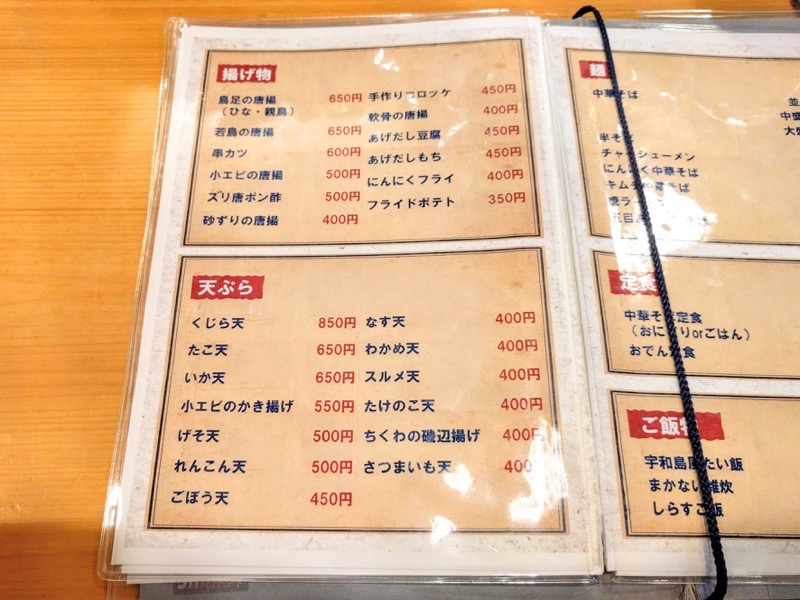 揚げ物
鳥足の唐揚 650円
(ひな・親鳥)
若鳥の唐揚 650円
串カツ 600円
小エビの唐揚 500円
ズリ唐ポン酢 500円
砂ずりの唐揚 400円
手作りコロッケ 450円
軟骨の唐揚 400円
あげだし豆腐 450円
あげだしもち 450円
にんにくフライ 400円
フライドポテト 350円
天ぷら
くじら天 850円
たこ天 650円
いか天 650円
小エビのかき揚げ 550円
げそ天 500円
れんこん天 500円
ごぼう天 450円
なす天 400円
わかめ天 400円
スルメ天 400円
たけのこ天 400円
ちくわの磯辺揚げ 400円
さつまいも天 400
麺
中華そば
並
中盛
大盛
半そば
チャーシューメン
にんにく中華そば
キムチ中華そば
定食
中華そば定食
(おにぎりorごはん)
おでん定食
ご飯物
宇和島風たい飯
まかない雑炊
しらすご飯